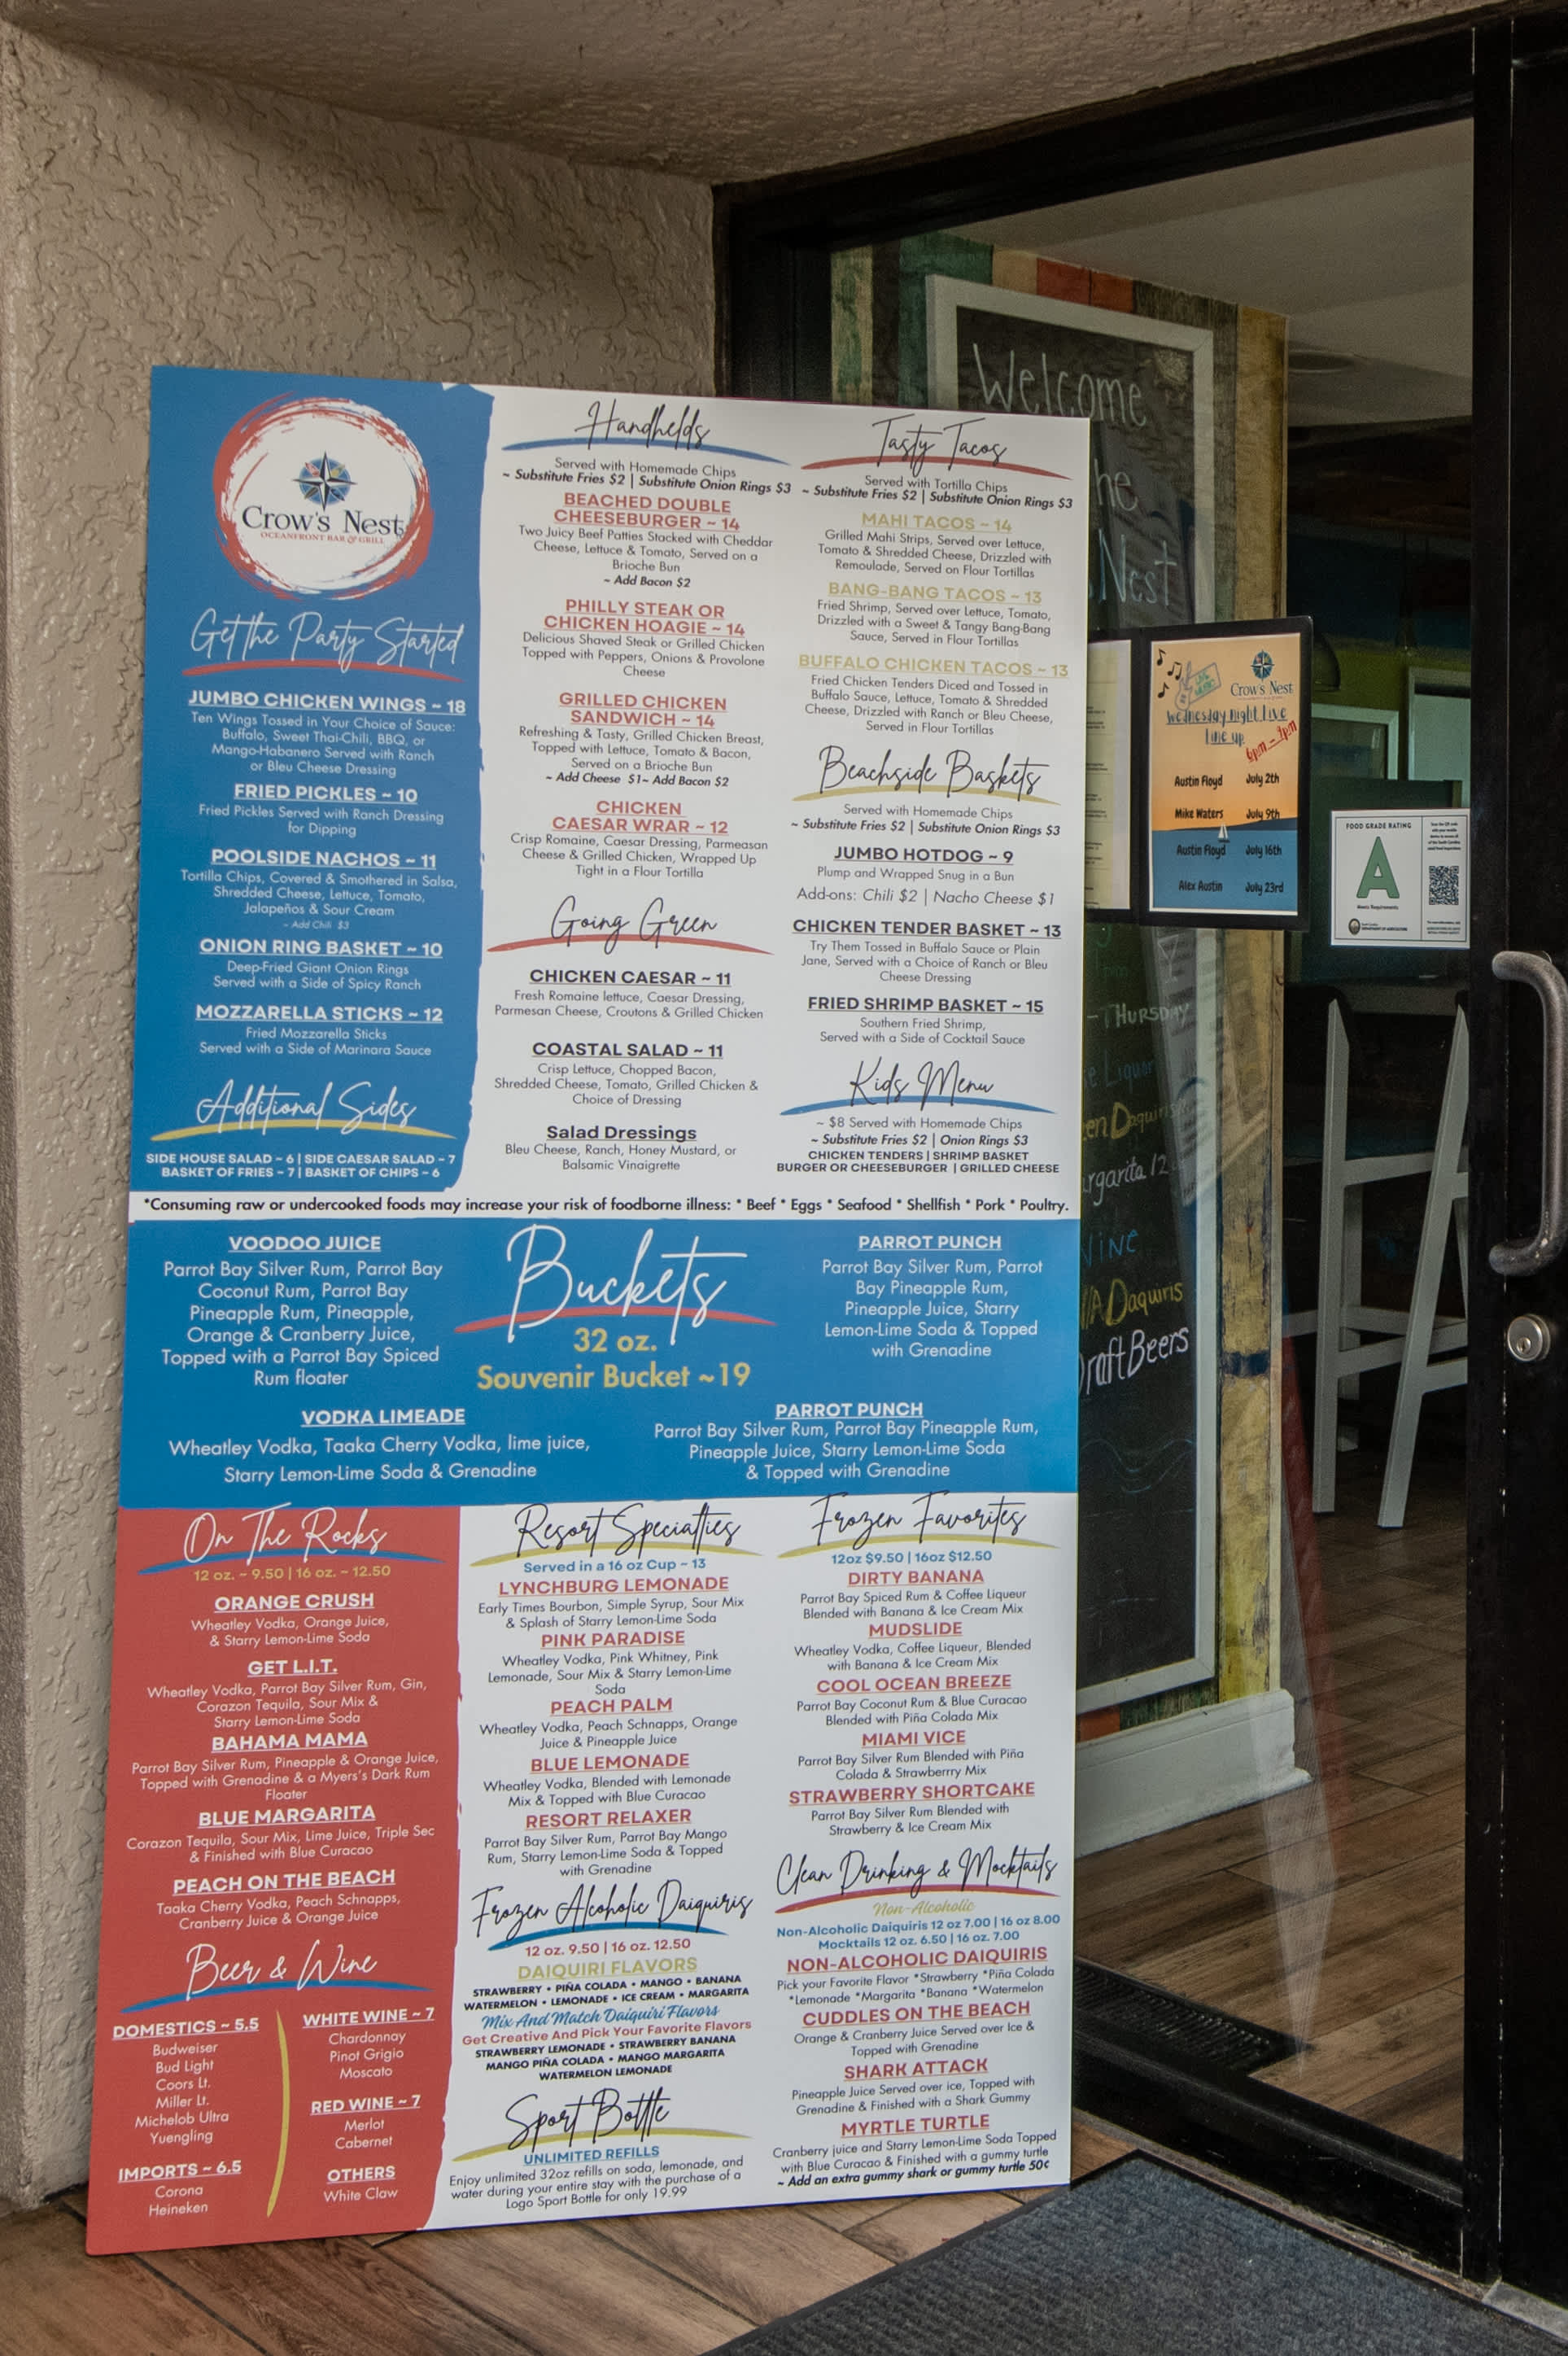 Crow's Nest
OCEANFRONT BAR & GRILL
Get the Party Started
JUMBO CHICKEN WINGS ~ 18
Ten Wings Tossed in Your Choice of Sauce:
Buffalo, Sweet Thai-Chili, BBQ, or
Mango-Habanero Served with Ranch
or Bleu Cheese Dressing
FRIED PICKLES ~ 10
Fried Pickles Served with Ranch Dressing
for Dipping
POOLSIDE NACHOS ~ 11
Tortilla Chips, Covered & Smothered in Salsa,
Shredded Cheese, Lettuce, Tomato,
Jalapeños & Sour Cream
~ Add Chili $3
ONION RING BASKET ~ 10
Deep-Fried Giant Onion Rings
Served with a Side of Spicy Ranch
MOZZARELLA STICKS ~ 12
Fried Mozzarella Sticks
Served with a Side of Marinara Sauce
Additional Sides
SIDE HOUSE SALAD ~ 6 | SIDE CAESAR SALAD ~ 7
BASKET OF FRIES ~ 7 | BASKET OF CHIPS ~ 6
Handhelds
Served with Homemade Chips
~ Substitute Fries $2 | Substitute Onion Rings $3
BEACHED DOUBLE
CHEESEBURGER ~ 14
Two Juicy Beef Patties Stacked with Cheddar
Cheese, Lettuce & Tomato, Served on a
Brioche Bun
~ Add Bacon $2
PHILLY STEAK OR
CHICKEN HOAGIE ~ 14
Delicious Shaved Steak or Grilled Chicken
Topped with Peppers, Onions & Provolone
Cheese
GRILLED CHICKEN
SANDWICH ~ 14
Refreshing & Tasty, Grilled Chicken Breast,
Topped with Lettuce, Tomato & Bacon,
Served on a Brioche Bun
~ Add Cheese $1~ Add Bacon $2
CHICKEN
CAESAR WRAR ~ 12
Crisp Romaine, Caesar Dressing, Parmeasan
Cheese & Grilled Chicken, Wrapped Up
Tight in a Flour Tortilla
Going Green
CHICKEN CAESAR ~ 11
Fresh Romaine lettuce, Caesar Dressing,
Parmesan Cheese, Croutons & Grilled Chicken
COASTAL SALAD ~ 11
Crisp Lettuce, Chopped Bacon,
Shredded Cheese, Tomato, Grilled Chicken &
Choice of Dressing
Salad Dressings
Bleu Cheese, Ranch, Honey Mustard, or
Balsamic Vinaigrette
Tasty Tacos
Served with Tortilla Chips
~ Substitute Fries $2 | Substitute Onion Rings $3
MAHI TACOS ~ 14
Grilled Mahi Strips, Served over Lettuce,
Tomato & Shredded Cheese, Drizzled with
Remoulade, Served on Flour Tortillas
BANG-BANG TACOS ~ 13
Fried Shrimp, Served over Lettuce, Tomato,
Drizzled with a Sweet & Tangy Bang-Bang
Sauce, Served in Flour Tortillas
BUFFALO CHICKEN TACOS ~ 13
Fried Chicken Tenders Diced and Tossed in
Buffalo Sauce, Lettuce, Tomato & Shredded
Cheese, Drizzled with Ranch or Bleu Cheese,
Served in Flour Tortillas
Beachside Baskets
Served with Homemade Chips
~ Substitute Fries $2 | Substitute Onion Rings $3
JUMBO HOTDOG ~ 9
Plump and Wrapped Snug in a Bun
Add-ons: Chili $2 | Nacho Cheese $1
CHICKEN TENDER BASKET ~ 13
Try Them Tossed in Buffalo Sauce or Plain
Jane, Served with a Choice of Ranch or Bleu
Cheese Dressing
FRIED SHRIMP BASKET ~ 15
Southern Fried Shrimp,
Served with a Side of Cocktail Sauce
Kids Menu
~ $8 Served with Homemade Chips
~ Substitute Fries $2 | Onion Rings $3
CHICKEN TENDERS | SHRIMP BASKET
BURGER OR CHEESEBURGER | GRILLED CHEESE
*Consuming raw or undercooked foods may increase your risk of foodborne illness: * Beef * Eggs * Seafood * Shellfish * Pork * Poultry.
VOODOO JUICE
Parrot Bay Silver Rum, Parrot Bay
Coconut Rum, Parrot Bay
Pineapple Rum, Pineapple,
Orange & Cranberry Juice,
Topped with a Parrot Bay Spiced
Rum floater
Buckets
32 oz.
Souvenir Bucket ~19
PARROT PUNCH
Parrot Bay Silver Rum, Parrot
Bay Pineapple Rum,
Pineapple Juice, Starry
Lemon-Lime Soda & Topped
with Grenadine
VODKA LIMEADE
Wheatley Vodka, Taaka Cherry Vodka, lime juice,
Starry Lemon-Lime Soda & Grenadine
PARROT PUNCH
Parrot Bay Silver Rum, Parrot Bay Pineapple Rum,
Pineapple Juice, Starry Lemon-Lime Soda
& Topped with Grenadine
On The Rocks
12 oz. ~ 9.50 | 16 oz. ~ 12.50
ORANGE CRUSH
Wheatley Vodka, Orange Juice,
& Starry Lemon-Lime Soda
GET L.I.T.
Wheatley Vodka, Parrot Bay Silver Rum, Gin,
Corazon Tequila, Sour Mix &
Starry Lemon-Lime Soda
BAHAMA MAMA
Parrot Bay Silver Rum, Pineapple & Orange Juice,
Topped with Grenadine & a Myers's Dark Rum
Floater
BLUE MARGARITA
Corazon Tequila, Sour Mix, Lime Juice, Triple Sec
& Finished with Blue Curacao
PEACH ON THE BEACH
Taaka Cherry Vodka, Peach Schnapps,
Cranberry Juice & Orange Juice
Beer & Wine
DOMESTICS ~ 5.5
Budweiser
Bud Light
Coors Lt.
Miller Lt.
Michelob Ultra
Yuengling
IMPORTS ~ 6.5
Corona
Heineken
WHITE WINE ~ 7
Chardonnay
Pinot Grigio
Moscato
RED WINE ~ 7
Merlot
Cabernet
OTHERS
White Claw
Resort Specialties
Served in a 16 oz Cup ~ 13
LYNCHBURG LEMONADE
Early Times Bourbon, Simple Syrup, Sour Mix
& Splash of Starry Lemon-Lime Soda
PINK PARADISE
Wheatley Vodka, Pink Whitney, Pink
Lemonade, Sour Mix & Starry Lemon-Lime
Soda
PEACH PALM
Wheatley Vodka, Peach Schnapps, Orange
Juice & Pineapple Juice
BLUE LEMONADE
Wheatley Vodka, Blended with Lemonade
Mix & Topped with Blue Curacao
RESORT RELAXER
Parrot Bay Silver Rum, Parrot Bay Mango
Rum, Starry Lemon-Lime Soda & Topped
with Grenadine
Frozen Alcoholic Daiquiris
12 oz. 9.50 | 16 oz. 12.50
DAIQUIRI FLAVORS
STRAWBERRY • PIÑA COLADA • MANGO • BANANA
WATERMELON • LEMONADE • ICE CREAM • MARGARITA
Mix And Match Daiquiri Flavors
Get Creative And Pick Your Favorite Flavors
STRAWBERRY LEMONADE • STRAWBERRY BANANA
MANGO PIÑA COLADA • MANGO MARGARITA
WATERMELON LEMONADE
Sport Bottle
UNLIMITED REFILLS
Enjoy unlimited 32oz refills on soda, lemonade, and
water during your entire stay with the purchase of a
Logo Sport Bottle for only 19.99
Frozen Favorites
12oz $9.50 | 16oz $12.50
DIRTY BANANA
Parrot Bay Spiced Rum & Coffee Liqueur
Blended with Banana & Ice Cream Mix
MUDSLIDE
Wheatley Vodka, Coffee Liqueur, Blended
with Banana & Ice Cream Mix
COOL OCEAN BREEZE
Parrot Bay Coconut Rum & Blue Curacao
Blended with Piña Colada Mix
MIAMI VICE
Parrot Bay Silver Rum Blended with Piña
Colada & Strawberrry Mix
STRAWBERRY SHORTCAKE
Parrot Bay Silver Rum Blended with
Strawberry & Ice Cream Mix
Clean Drinking & Mocktails
Non-Alcoholic
Non-Alcoholic Daiquiris 12 oz 7.00 | 16 oz 8.00
Mocktails 12 oz. 6.50 | 16 oz. 7.00
NON-ALCOHOLIC DAIQUIRIS
Pick your Favorite Flavor *Strawberry *Piña Colada
*Lemonade *Margarita *Banana *Watermelon
CUDDLES ON THE BEACH
Orange & Cranberry Juice Served over Ice &
Topped with Grenadine
SHARK ATTACK
Pineapple Juice Served over ice, Topped with
Grenadine & Finished with a Shark Gummy
MYRTLE TURTLE
Cranberry juice and Starry Lemon-Lime Soda Topped
with Blue Curacao & Finished with a gummy turtle
~ Add an extra gummy shark or gummy turtle 50¢
Welcome
he
Nest
- THURSDAY
Liquor
en Daquiris
rgarita 12
Wine
N/A Daquiris
Draft Beers
LIVE MUSIC
Crow's Nest
Wednesday Night Live
line up
Austin Floyd July 2th
Mike Waters July 9th
Austin Floyd July 16th
Alex Austin July 23rd
FOOD GRADE RATING
A
Meets Requirements
DEPARTMENT OF AGRICULTURE